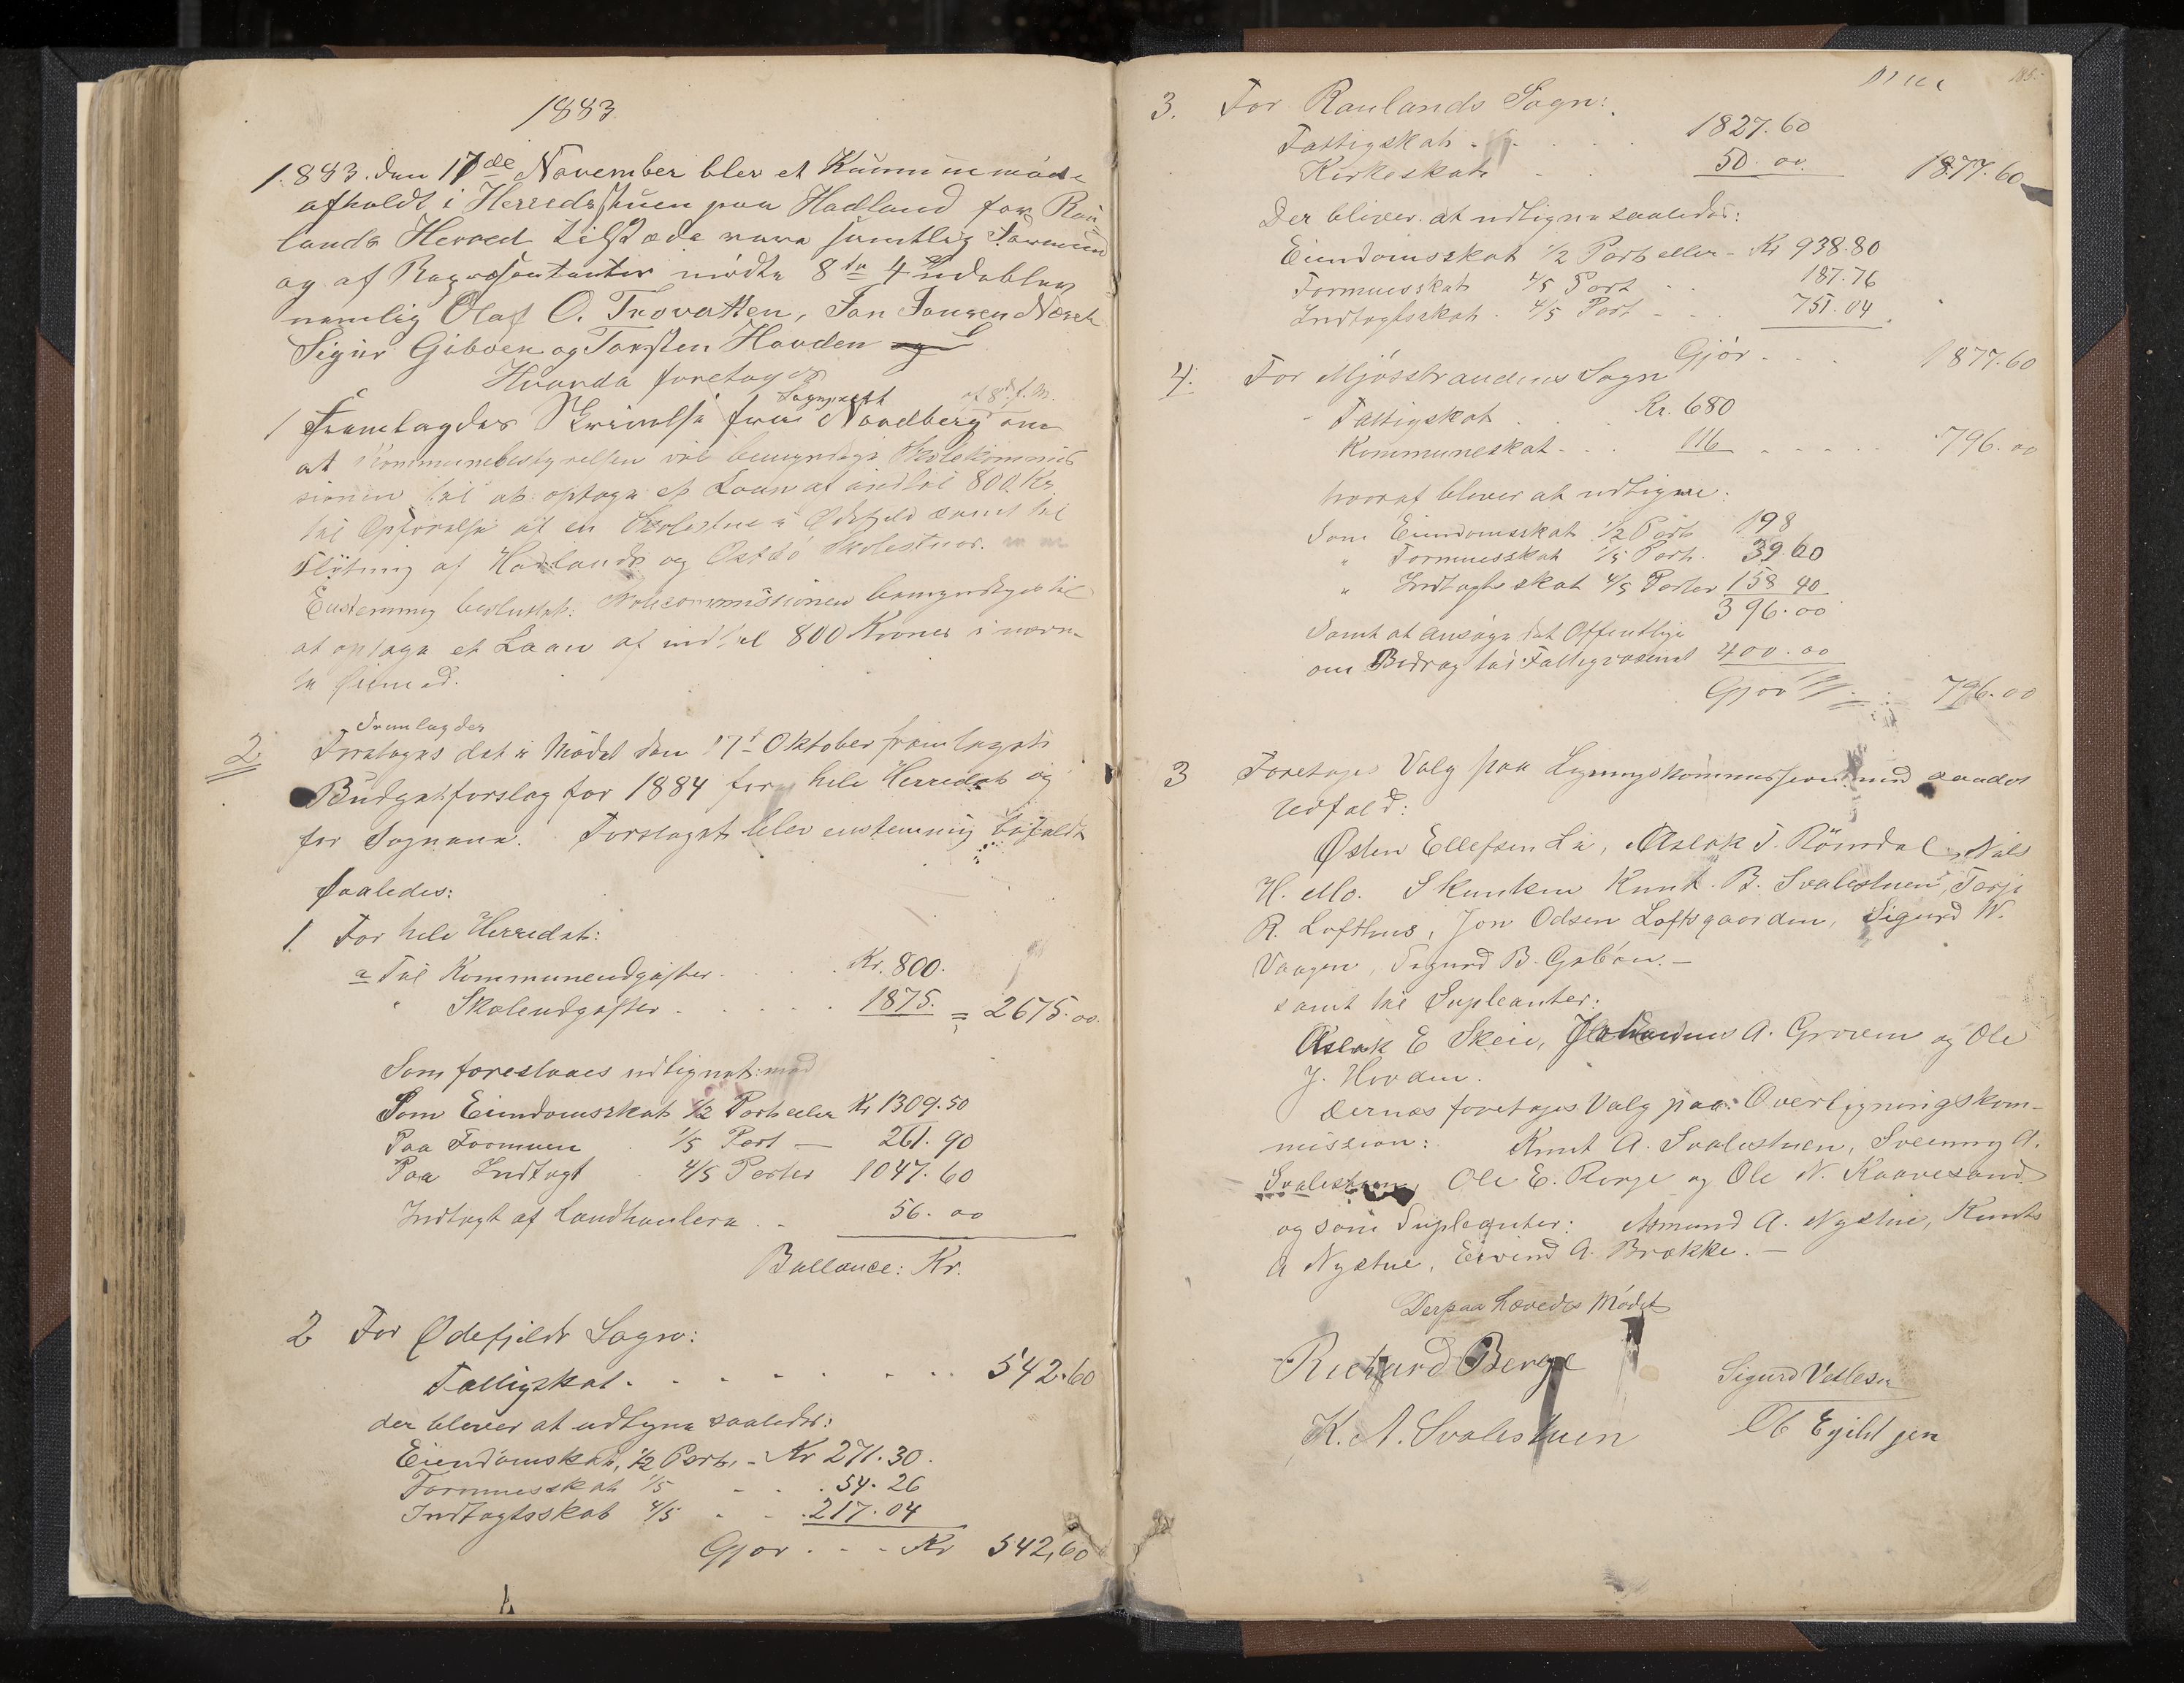 1883
1883. den 17de November blev et Kummunemøde
afholdt i Herredsstuen paa Hadland for Rau
lands Herred tilstæde vare samtlig Formænd
og af Representanter mødte 8te 4 udeblev
nemlig Olaf O. Trovatten, Jon Jonsen
Sigur Gibøen og Torsten Hovden og
Hvorda foretoges
1 Fremlagdes Skrivelse fra Sogneprest Nordberg af 8de f. M. om
at Kommunebestyrelsen vil bemyndige Skolekommis
sionen til at optage et Laan af indtil 800 Kr.
til Opførelse af en Skolestue i Ødefjeld samt til
Flytning af Hadlands og Østbø Skolestuer.
Enstemmig besluttet: Skolecommissionen bemyndiges til
at optage et Laan af indtil 800 Kroner i nævn-
te Øiemed.
2 Fremlagdes
Foretoges det i Mødet den 17de Oktober fremlagte
Budgetforslag for 1884 for hele Herredet og
for Sognene. Forslaget blev enstemmig bifaldt
saaledes:
1. For hele Herredet:
a Til Kommuneudgifter . . . Kr. 800.
" Skoleudgifter . . . . . 1875. = 2675.00.
Som foreslaaes udlignet: med
Som Eiendomsskat 1/2 Part eller Kr 1309.50
Paa Formuen . 1/5 Part — 261.90
Paa Indtægt . 4/5 Parter 1047.60
Indtægt af Landhandlere . . 56.00
Ballance: Kr.
2 For Ødefjelds Sogn:
Fattigskat . . . . . . . . . 542.60
der bliver at udligne saaledes:
Eiendomskat, 1/2 Part, - Kr 271.30.
Formuesskat 1/5 - - . 54.26
Indtægtsskat 4/5 - - . 217.04
Gjør . - - Kr 542,60
185.
3. For Raulands Sogn:
Fattigskat . . . . . 1827.60
Kirkeskat . . 50.00. 1877.60
Der bliver at udligne saaledes:
Eiendomsskat 1/2 Part eller - Kr 938.80
Formuesskat 4/5 Part - - 187.76
Indtægtsskat . 4/5 Part - - . 751.04
Gjør - - . 1877.60
4. For Mjösstrandens Sogn
- Fattigskat . . . Kr. 680
Kommuneskat - - . 116 - - - - - 796.00
hvoraf bliver at udligne:
Som Eiendomsskat 1/2 Part 198
" Formuesskat 1/5 Part. 39.60
" Indtægtsskat 4/5 Parter 158 40
396.00
Samt at ansøge det Offentlige
om Bidrag til Fattigvæsenet 400.00
Gjør 796.00
3 Foretoges Valg paa Ligningskommission med saadet
Udfald:
Østen Ellefsen Li, Aslak T. Römdal, Nils
H. Mo. Skunken Knut. B. Svalestuen, Torje
R. Lofthus, Jon Odsen Loftsgaarden, Sigurd W.
Vaagen, Sigurd B. Gibøn. —
samt til Supleanter:
Aslak E Skeie, Johannes A. Groven og Ole
J. Hovden.
Dernæs foretoges Valg paa: Overligningskom-
mission: Knut A. Svalestuen, Sveinung A.
Svalestuen, Ole E. Berge og Ole N. Kaavesand
og som Supleanter: Asmund A. Nystue, Knut
A Nystue, Eivind A. Brække. —
Derpaa hævedes Mødet
Richard Berge
Sigurd Vetlesen
K. A. Svalestuen